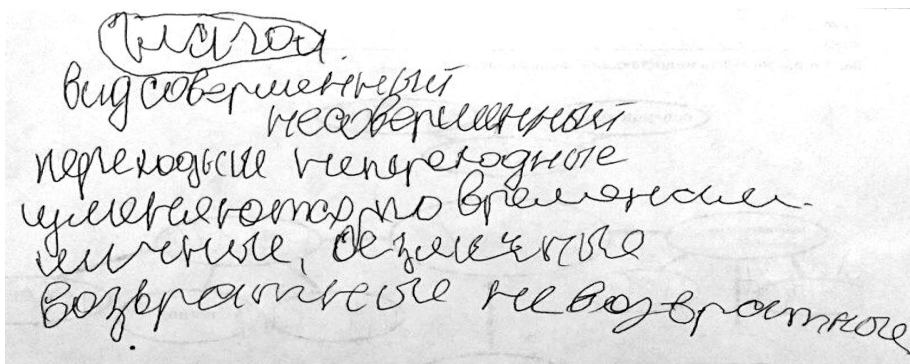 Глагол
вид совершенный
несовершенный
переходные непереходные
изменяются по временам.
личные, безличные
возвратные невозвратные